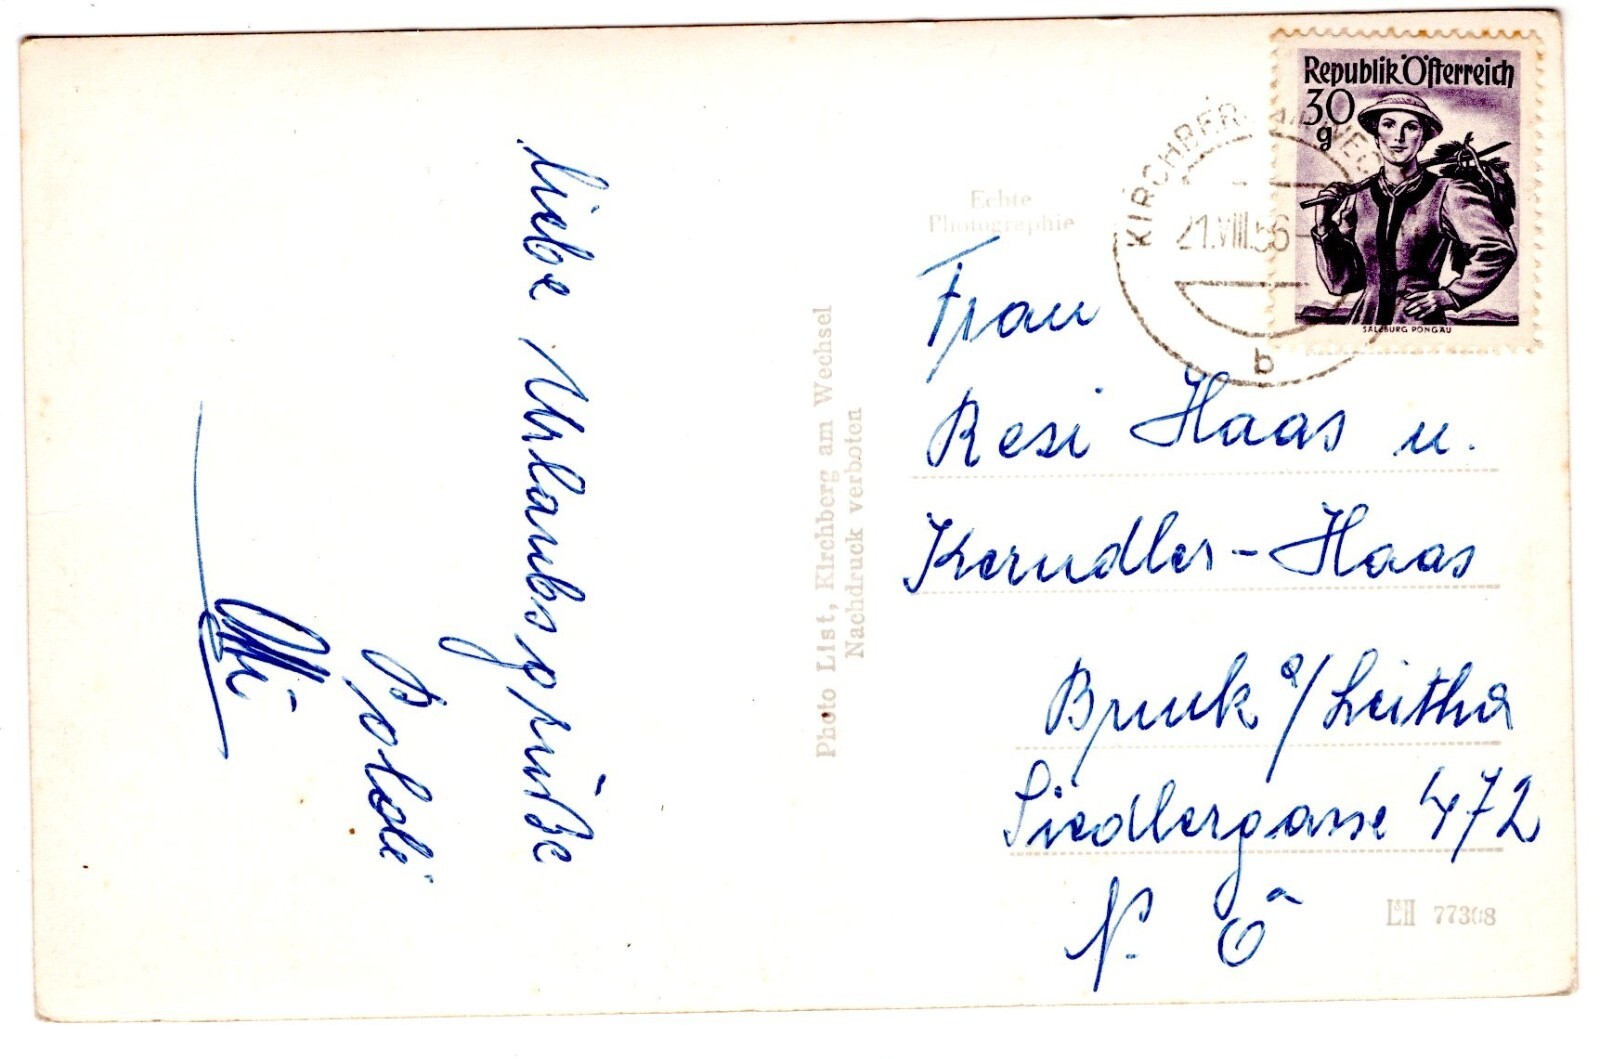 liebe Urlaubsgrüße
Poldi
Photo List, Kirchberg am Wechsel
Nachdruck verboten
Echte
Photographie
Republik Österreich
30
g
SALZBURG PONGAU
KIRCHBERG AM WECHSEL
21.VIII.56
b
Frau
Resi Haas u.
Kerndler-Haas
Bruck a/Leitha
Siedlergasse 472
N. Ö
L&H 77308